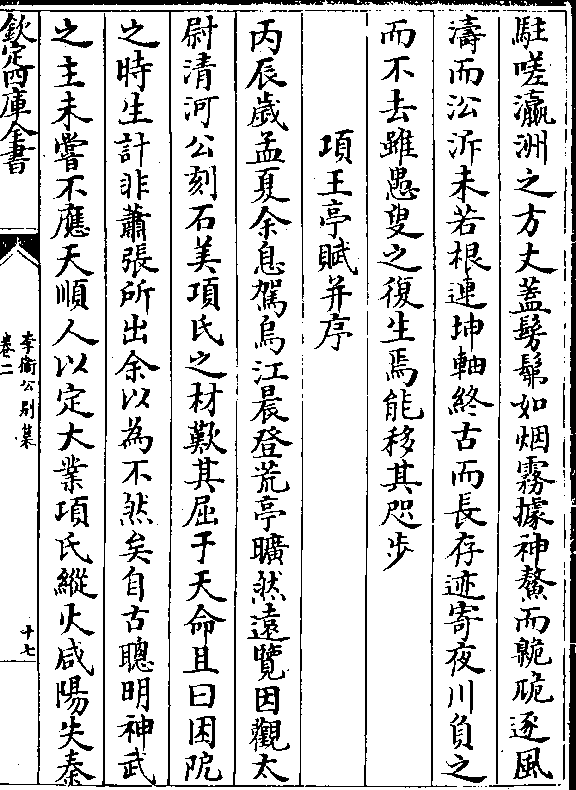 駐嗟瀛洲之方丈蓋髣髴如烟霧據神鼇而臲卼逐風
濤而㳂泝未若根連坤軸終古而長存迹寄夜川負之
而不去雖愚叟之復生焉能移其咫步
項王亭賦并序
丙辰歲孟夏余息駕烏江晨登荒亭曠然遠覽因觀太
尉清河公刻石美項氏之材歎其屈于天命且曰困阨
之時生計非蕭張所出余以為不然矣自古聰明神武
之主未嘗不應天順人以定大業項氏縱火咸陽失秦
欽定四庫全書
李衛公别集
卷二
十七